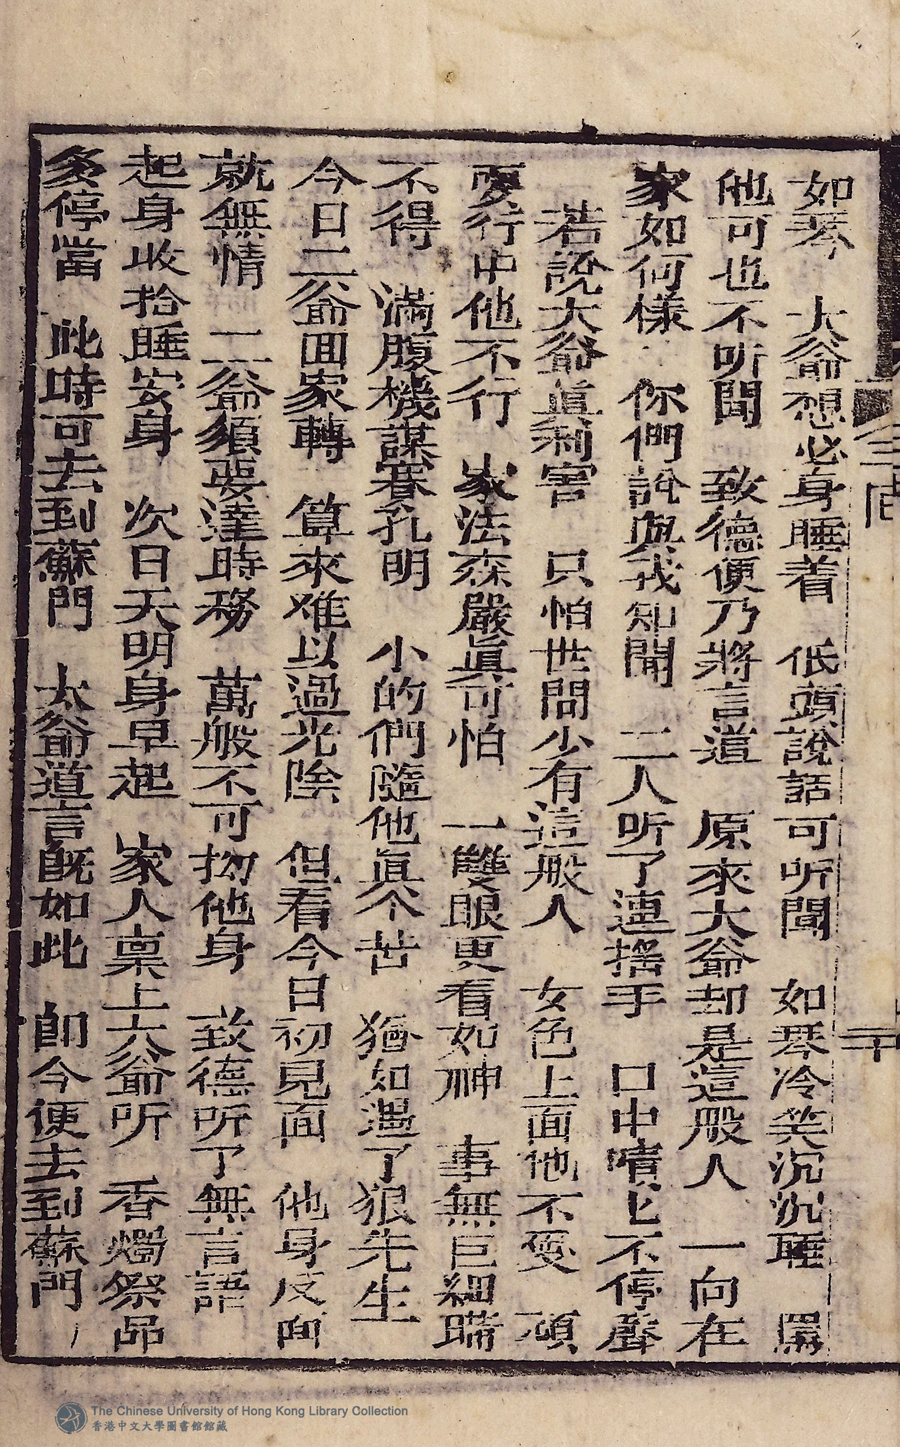 如琴　大爺想必身睡着　低頭說話可听聞　如琴冷笑沉沉睡　
他可也不听聞　致德便乃將言道　原來大爺却是這般人　一向在
家如何樣　你們說與我知聞　二人听了連搖手　口中嘖匕不停聲
若說大爺真利害　只怕世間少有這般人　女色上面他不愛　頑
耍行中他不行　家法森嚴眞可怕　一雙眼更看如神　事無巨細瞞
不得　滿腹機謀賽孔明　小的們隨他眞个苦　猶如遇了狠先生
今日二爺囬家轉　算來难以過光陰　但看今日初見面　他身反面
就無情　二爺須要達時務　萬般不可拗他身　致德听了無言語
起身收拾睡安身　次日天明身早起　家人稟上六爺听　香燭祭品
停當　此時可去到蘇門　太爺道言既如此　即今便去到蘇門
二十
The Chinese University of Hong Kong Library Collection
香港中文大學圖書館館藏